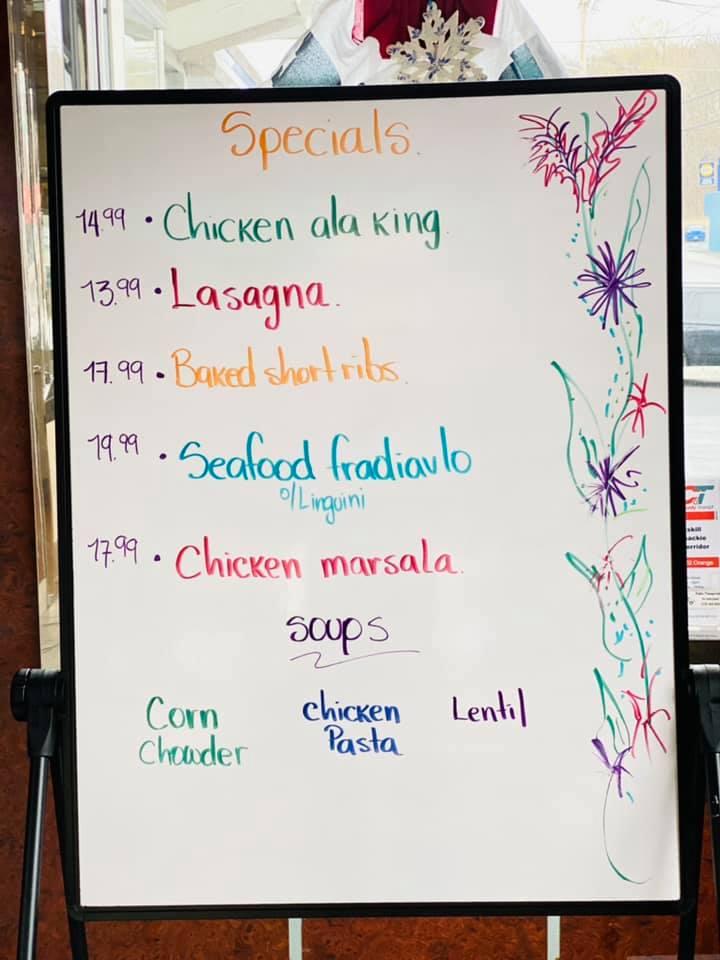 Specials.
14.99 • Chicken ala King.
13.99 • Lasagna.
17.99 • Baked short ribs.
19.99 • Seafood fradiavlo
o/Linguini
17.99 • Chicken marsala.
Soups
Corn Chowder
Chicken Pasta
Lentil